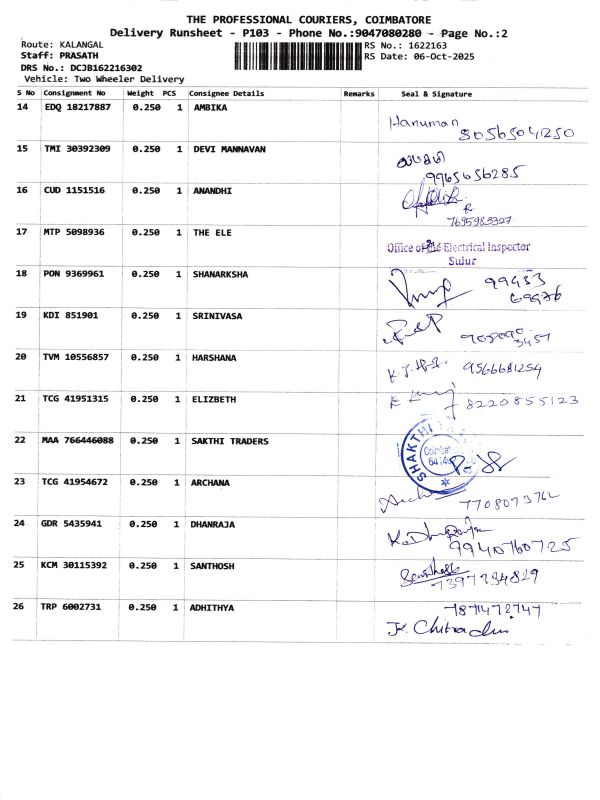 THE PROFESSIONAL COURIERS, COIMBATORE
Delivery Runsheet - P103 - Phone No.:9047080280 - Page No.:2
Route: KALANGAL RS No.: 1622163
Staff: PRASATH RS Date: 06-Oct-2025
DRS No.: DCJB162216302
Vehicle: Two Wheeler Delivery
S No Consignment No Weight PCS Consignee Details Remarks Seal & Signature
14 EDQ 18217887 0.250 1 AMBIKA
Hanuman
8056504250
15 TMI 30392309 0.250 1 DEVI MANNAVAN
9965656285
16 CUD 1151516 0.250 1 ANANDHI
R
7695983327
17 MTP 5098936 0.250 1 THE ELE
Office of the Electrical Inspector
Sulur
18 PON 9369961 0.250 1 SHANARKSHA
99453
69976
19 KDI 851901 0.250 1 SRINIVASA
20 TVM 10556857 0.250 1 HARSHANA
9566681254
21 TCG 41951315 0.250 1 ELIZBETH
8220855123
22 MAA 766446088 0.250 1 SAKTHI TRADERS
SHAKTHI
23 TCG 41954672 0.250 1 ARCHANA
7708073762
24 GDR 5435941 0.250 1 DHANRAJA
K. Dhanraja
9940760725
25 KCM 30115392 0.250 1 SANTHOSH
Santhosh
7397734829
26 TRP 6002731 0.250 1 ADHITHYA
7871472747
K. Chitradevi